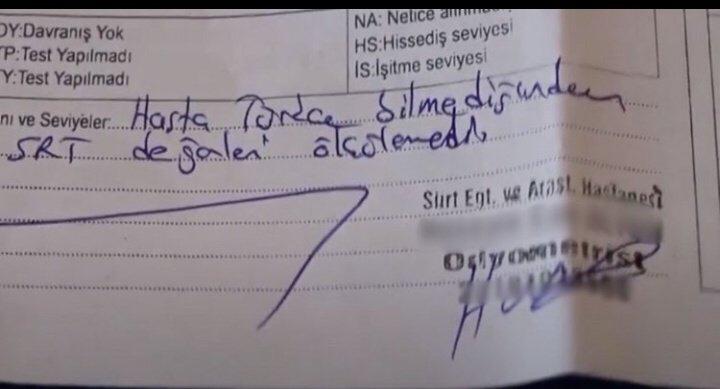 DY:Davranış Yok
TP:Test Yapılmadı
Y:Test Yapılmadı
NA: Netice alınma
HS:Hissediş seviyesi
İS:İşitme seviyesi
nı ve Seviyeler: Hasta Türkçe bilmediğinden
SRT değerleri ölçülemedi.
Siirt Eğt. ve Araşt. Hastanesi